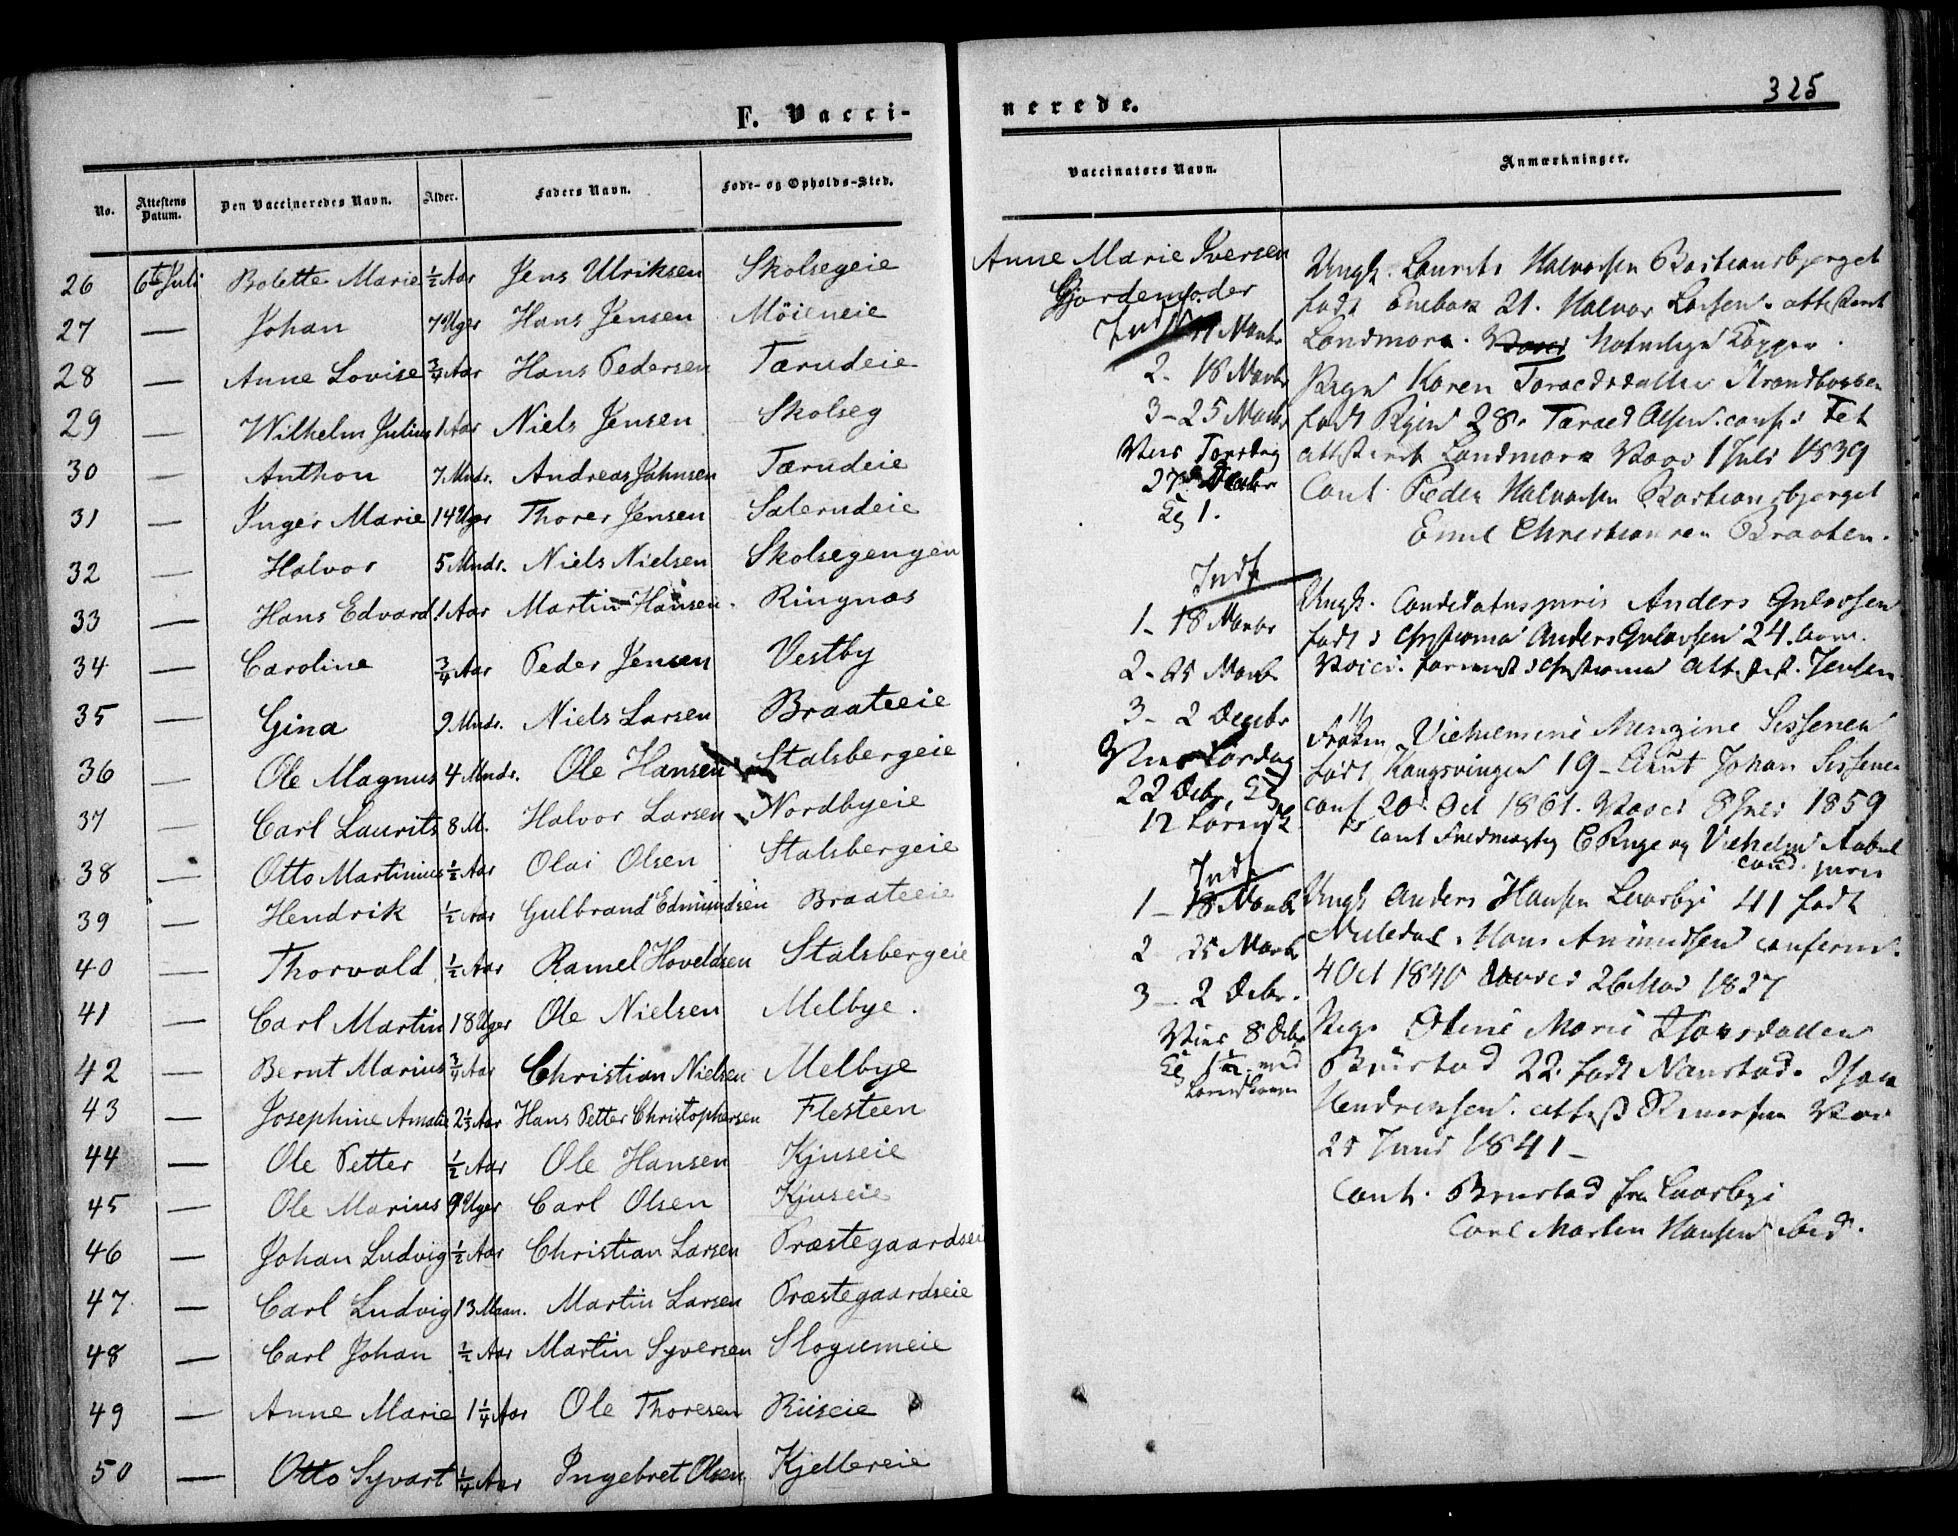 325
F. Vacci-
nerede.
No. Attestens Datum. Den Vaccineredes Navn. Alder. Faders Navn. Føde- og Opholds-Sted.
26 6te Juli Bolette Marie ½ Aar Jens Ulriksen Skolsegeie
27 — Johan 7 Uger Hans Jensen Möieneie
28 — Anne Lovise ¾ Aar Hans Pedersen Tærudeie
29 — Wilhelm Julius 1 Aar Niels Jensen Skolseg
30 — Anthon 7 Mndr. Andreas Johnsen Tærudeie
31 — Inger Marie 14 Uger Thorer Jensen Salerudeie
32 — Halvor 5 Mndr. Niels Nielsen Skolsegengen
33 — Hans Edvard 1 Aar Martin Hansen. Ringnæs
34 — Caroline ¾ Aar Peder Jensen Vestby
35 — Gina 9 Mndr. Niels Larsen Braateeie
36 — Ole Magnus 4 Mndr. Ole Hansen Stalsbergeie
37 — Carl Laurits 8 M. Halvor Larsen Nordbyeie
38 — Otto Martinius ½ Aar Olai Olsen Stalsbergeie
39 — Hendrik ½ Aar Gulbrand Edmundsen Braateeie
40 — Thorvald ½ Aar Ramel Hoveldsen Stalsbergeie
41 — Carl Martin 18 Uger Ole Nielsen Melbye.
42 — Bernt Marius ¾ Aar Christian Nielsen Melbye
43 — Josephine Amalie 2⅓ Aar Hans Petter Christophersen Flesteen
44 — Ole Petter ½ Aar Ole Hansen Kjuseie
45 — Ole Marius 9 Uger Carl Olsen Kjuseie
46 — Johan Ludvig ½ Aar Christian Larsen Præstegaardseie
47. — Carl Ludvig 13 Maan. Martin Larsen Præstegaardseie
48 — Carl Johan ½ Aar Martin Syversen Slogumeie
49 — Anne Marie 1¼ Aar Ole Thoresen Riiseie
50 — Otto Syvart ¼ Aar Ingebret Olsen Kjellereie
Vaccinators Navn.
Anne Marie Iversen
Gjordemoder
11 Novbr
2. 18 Novbr
3 - 25 Novbr
Vies Torsdag
27 Decbr
1.
Indf
1 - 18 Novbr
2 - 25 Novbr
3 - 2 Decbr
Vies Lørdag
22 Decbr.
12
Indf
1 - 18 Novbr
2 25 Novbr
3 - 2 Decbr.
Vies 8 Decbr
1½ med
Anmærkninger.
Ungk. Laurits Halvorsen Bastiansbjerget
født Enebak 21. Halvor Larsen. attesteret
Landmark. Naturlige Kopper.
Pigen Karen Taraldsdatter Strandbakken
født 28. Tarald Olsen. conf. i Fet
attesteret Landmark Vacc 1 Juli 1839
Caut. Peder Halvorsen Bastiansbjerget
Emil Christiansen Braaten.
Ungk. Candidatus juris Anders Gulovsen
født i Christiania Anders Gulovsen 24.
Christiania attest. Jensen
Frøken Vilhelmine Sissener
født Kongsvinger 19 - Johan Sissener
conf 20 Oct 1861. Vacc 8 Juli 1859
Caut C Ruge og Vilhelm Aubel
cand. juris
Ungk Anders Hansen Leirbye 41 født
Hans Amundsen conferm.
4 Oct 1840 Vacc 26 Mai 1827
Pige Oline Marie Isaksdatter
Brustad 22. født Nanstad. Isak
Hendriksen. attest Vac
25 Juni 1841 -
Caut. Brustad fra
Carl Martin Hansen ibid.